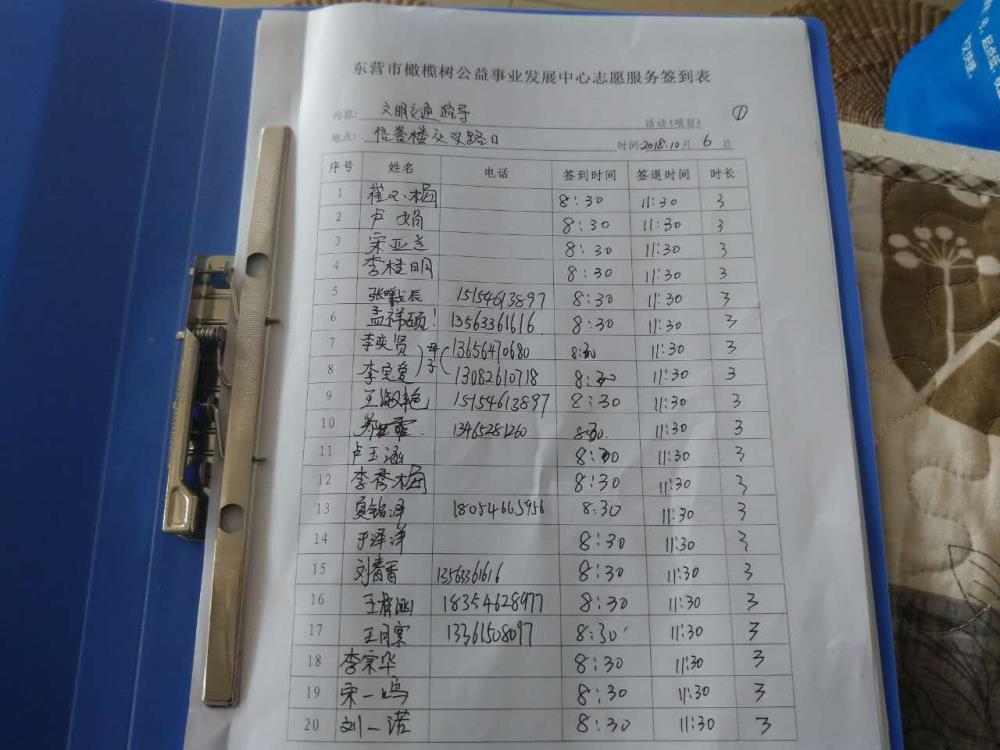 东营市橄榄树公益事业发展中心志愿服务签到表
内容: 文明交通疏导 活动(项目) ①
地点: 信誉楼交叉路口 时间:2018.10月 6 日
序号 姓名 电话 签到时间 签退时间 时长
1 崔 梅 8:30 11:30 3
2 卢 娟 8:30 11:30 3
3 宋亚 8:30 11:30 3
4 李桂明 8:30 11:30 3
5 张 辰 15154613897 8:30 11:30 3
6 孟祥硕 13563361616 8:30 11:30 3
7 李奕贤 母子 13656470680 8:30 11:30 3
8 李宝爱 13082610718 8:30 11:30 3
9 王淑艳 15154613897 8:30 11:30 3
10 13465281260 8:30 11:30 3
11 卢玉涵 8:30 11:30 3
12 李秀梅 8:30 11:30 3
13 铭泽 18054665956 8:30 11:30 3
14 于泽洋 8:30 11:30 3
15 刘青香 13563361616 8:30 11:30 3
16 王 涵 18354628977 8:30 11:30 3
17 王 13361508097 8:30 11:30 3
18 李宗华 8:30 11:30 3
19 宋一鸣 8:30 11:30 3
20 刘一诺 8:30 11:30 3